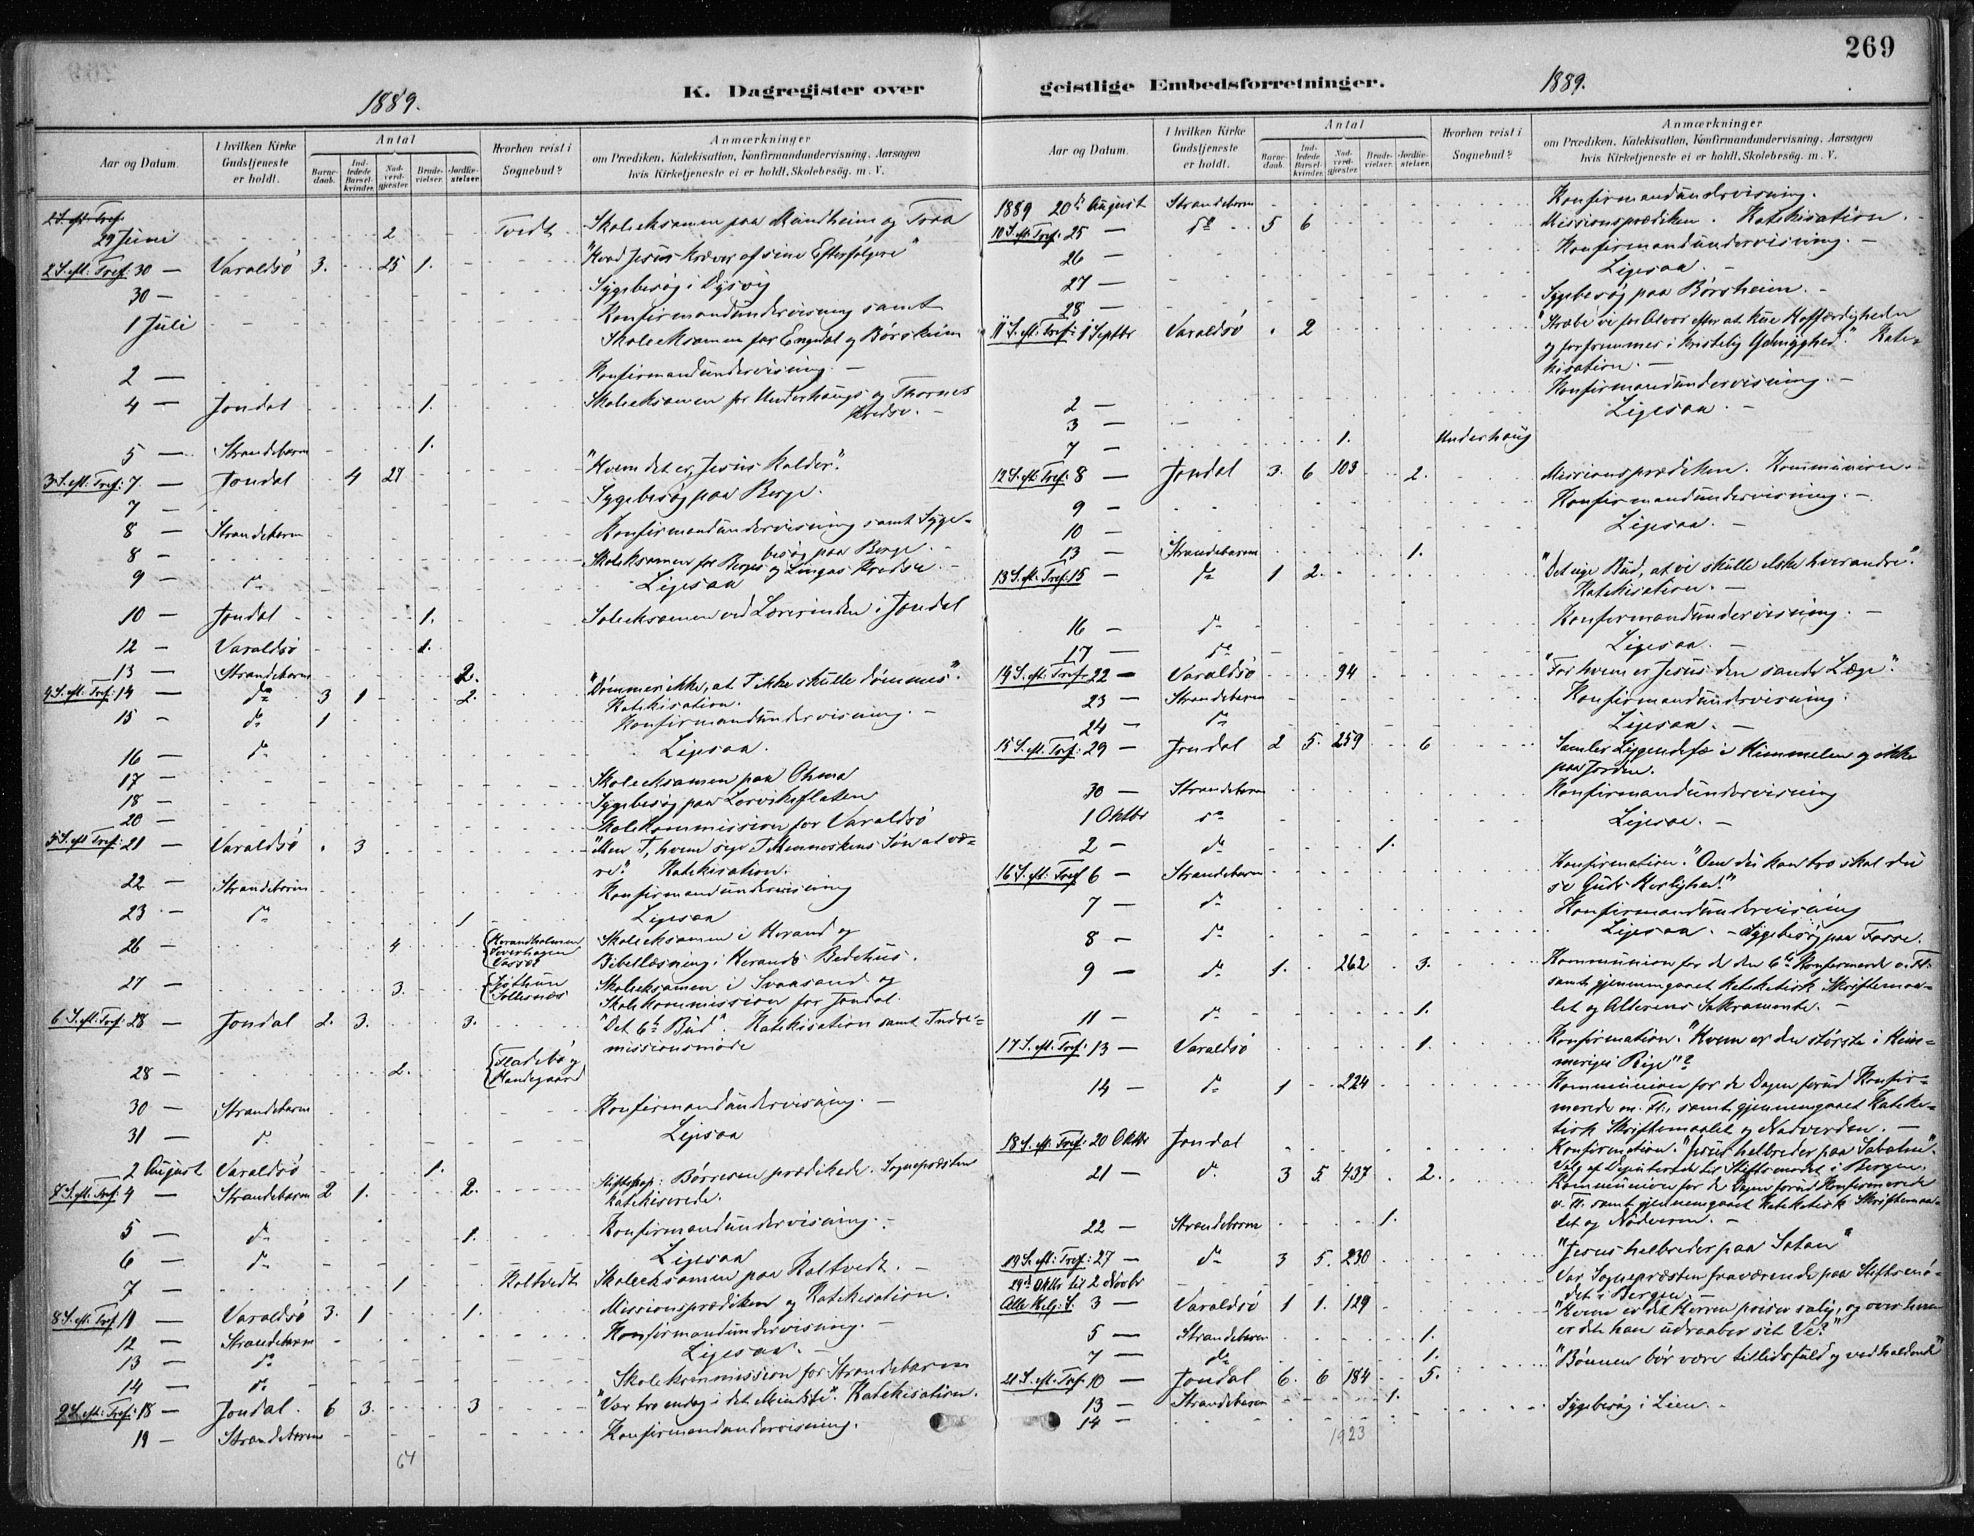 269
1889.
K. Dagregister over
geistlige Embedsforretninger.
1889.
Aar og Datum.
I hvilken Kirke Gudstjeneste er holdt.
Antal
Barnedaab.
Indledede Barselkvinder.
Nadverdgjester.
Brudevielser.
Jordfæstelser.
Hvorhen reist i Sognebud?
Anmærkninger
om Prædiken, Katekisation, Konfirmandundervisning, Aarsagen
hvis Kirketjeneste ei er holdt, Skolebesøg. m. V.
29 Juni 2 Tvedt Skoleeksamen paa Mundheim og Traa
2 S. eft. Tref: 30 — Varaldsø 3. 25 1. "Hvad Jesus kræver af sine Efterfølgere"
30 — Sygebesøg i Dysvig
1 Juli Konfirmandundervisning samt
Skoleeksamen for Engedal og Børsheim
2 — Konfirmandundervisning. —
4 — Jondal 1. Skoleeksamen for Underhaugs og Thornes
Kredse. —
5 — Strandebarm 1.
3 S. eft. Tref: 7 — Jondal 4 27 "Hvem det er, Jesus kalder".
7 — Sygebesøg paa Berge.
8 — Strandebarm Konfirmandundervisning samt Syge-
besøg paa Berge. —
8 — Skoleeksamen for Berges og Lingas Kredse. —
9 — do Ligesaa
10 — Jondal 1. Skoleeksamen ved Lærerinden i Jondal
12 — Varaldsø 1.
13 — Strandebarm 2.
4 S. eft. Tref: 14 — do 3 1 2. "Dømmer ikke, at I ikke skulle dømmes".
Katekisation.
15 — do 1 Konfirmandundervisning. —
16 — do Ligesaa.
17 — Skoleeksamen paa Ohma
18 — Sygebesøg paa Lervikflaten
20 — Skolekommission for Varaldsø
5 S. eft. Tref: 21 — Varaldsø 3 "Men I, hvem sige I Menneskens Søn at væ-
re". Katekisation.
22 — Strandebarm Konfirmandundervisning
23 — do 1 Ligesaa
26 — 4 Skoleeksamen i Herand og
Bibellæsning i Herands Bedehus.
27 — 3. Skoleeksamen i Svaasand og
Solesnæs Skolekommission for Jondal.
6 S. eft. Tref: 28 — Jondal 2. 3. 3. "Det 6te Bud". Katekisation samt Indre-
missionsmøde
28 — 2. Fladebø og
Handegaard
30 — Strandebarm Konfirmandundervisning. —
31 — do Ligesaa
2 August Varaldsø 1.
7 S. eft. Tref: 4 — Strandebarm 2 1. 2. Stiftsprop: Børresen prædikede. Sognepræsten
katekiserede.
5 — do 1. Konfirmandundervisning. —
6 — do Ligesaa
7 — 1 Koltvedt Skoleeksamen paa Koltvedt. —
8 S. eft. Tref 11 — Varaldsø 3. 1 1. Missionsprædiken og Katekisation.
12 — Strandebarm Konfirmandundervisning. —
13 — do Ligesaa. —
14 — do Skolekommission for Strandebarm
9 S. eft. Tref: 18 — Jondal. 6 3. 3 "Vær tro endog i det Mindste". Katekisation.
19 — Strandebarm Konfirmandundervisning.
64
Aar og Datum.
I hvilken Kirke Gudstjeneste er holdt.
Antal
Barnedaab.
Indledede Barselkvinder.
Nadverdgjester.
Brudevielser.
Jordfæstelser.
Hvorhen reist i Sognebud?
Anmærkninger
om Prædiken, Katekisation, Konfirmandundervisning, Aarsagen
hvis Kirketjeneste ei er holdt, Skolebesøg. m. V.
1889 20de August Strandebarm Konfirmandundervisning.
10 S. eft. Tref. 25 — do 5 6 Missionsprædiken. Katekisation.
26 — Konfirmandundervisning. —
27 — Ligesaa. —
28 — Sygebesøg paa Børsheim. —
11 S. eft. Tref: 1 Septbr Varaldsø 2 "Stræbe vi for Alvor efter at kue Hoffærdigheden
og forfremmes i kristelig Ydmyghed". Kate-
kisation. —
2 — Konfirmandundervisning. —
3 — Ligesaa. —
7 — 1. Underhaug
12 S. eft. Tref: 8 — Jondal 3. 6 103 2. Missionsprædiken. Kommunion.
9 — Konfirmandundervisning. —
10 — Ligesaa. —
13 — Strandebarm 1.
13 S. eft. Tref: 15 — do 1 2. "Det nye Bud, at vi skulle elske hverandre".
Katekisation. —
16 — do Konfirmandundervisning. —
17 — do Ligesaa. —
14 S. eft. Tref: 22 — Varaldsø 94 "For hvem er Jesus den sande Læge".
23 — Strandebarm Konfirmandundervisning.
24 — do Ligesaa. —
15 S. eft. Tref: 29 — Jondal 2 5. 259 6 Samler Liggendefæ i Himmelen og ikke
paa Jorden.
30 — Strandebarm Konfirmandundervisning
1 Oktbr do Ligesaa. —
2 — do 1.
16 S. eft. Tref 6 — Strandebarm Konfirmation. "Om du kan tro skal du
se Guds Herlighed."
7 — do Konfirmandundervisning
8 — do Ligesaa. — Sygebesøg paa Fosse.
9 — do 1. 262 3. Kommunion for de den 6te Konfirmerede m. Fl.
samt gjennemgaaet kateketisk Skriftemaa-
let og Alterens Sakramente. —
11 — do 1.
17 S. eft. Tref: 13 — Varaldsø 1. Konfirmation. "Hvem er den største i Him-
meriges Rige"?
14 — do 1 224 Kommunion for de Dagen forud Konfir-
merede m. Fl., samt gjennemgaaet Kateke-
tisk Skriftemaalet og Nadverden. —
18 S. eft. Tref: 20 Oktbr Jondal Konfirmation. "Jesus helbreder paa Sabaten".
Valg af Deputerede til Stiftsmødet i Bergen.
21 — do 3 5. 437 2. Kommunion for de Dagen forud Konfirmerede
m. Fl. samt gjennemgaaet Katekatisk Skriftemaa-
let og Nadveren. —
22 — Strandebarm 1.
19 S. eft. Tref: 27 — do 3 5. 230 "Jesus helbreder paa Satan"
29de Oktbr til 2 Novbr Var Sognepræsten fraværende paa Stiftsmø-
det i Bergen —
Alle Helg: S. 3 — Varaldsø 1 1. 129 "Hvem er det Herren priser salig, og over hvem
er det han udraaber sit Ve?"
5 — Strandebarm 1.
7 — do 1.
21 S. eft. Tref 10 — Jondal 6. 6 184 5. "Bønnen bør være tillidsfuld og vedholdende"
13 — Strandebarm 1.
14 — Sygebesøg i Lien. —
1923